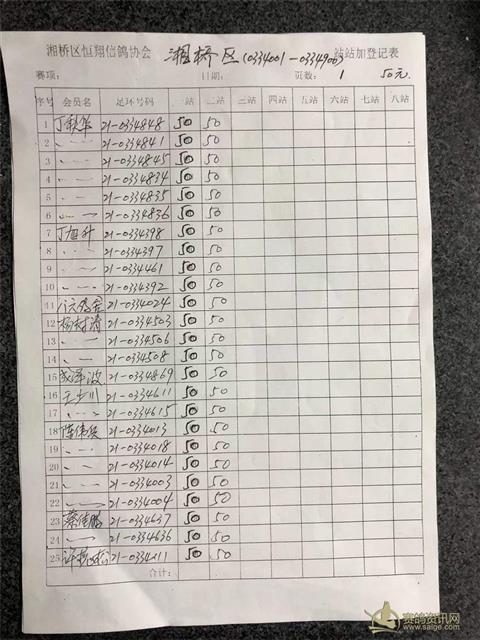 湘桥区恒翔信鸽协会 湘桥区(0334001-0334900) 站站加登记表
赛项: 日期: 页数: 1 50元
序号 会员名 足环号码 一站 二站 三站 四站 五站 六站 七站 八站
1 21-0334848 50 50
2 21-0334841 50 50
3 21-0334845 50 50
4 21-0334834 50 50
5 21-0334835 50 50
6 21-0334836 50 50
7 丁旭升 21-0334398 50 50
8 21-0334397 50 50
9 21-0334461 50 50
10 21-0334392 50 50
11 21-0334024 50 50
12 21-0334503 50 50
13 21-0334506 50 50
14 21-0334508 50 50
15 21-0334869 50 50
16 21-0334611 50 50
17 21-0334615 50 50
18 21-0334013 50 50
19 21-0334018 50 50
20 21-0334014 50 50
21 21-0334003 50 50
22 21-0334004 50 50
23 蔡佳鹏 21-0334637 50 50
24 21-0334636 50 50
25 21-0334011 50 50
合计:
赛鸽资讯网
www.saige.com